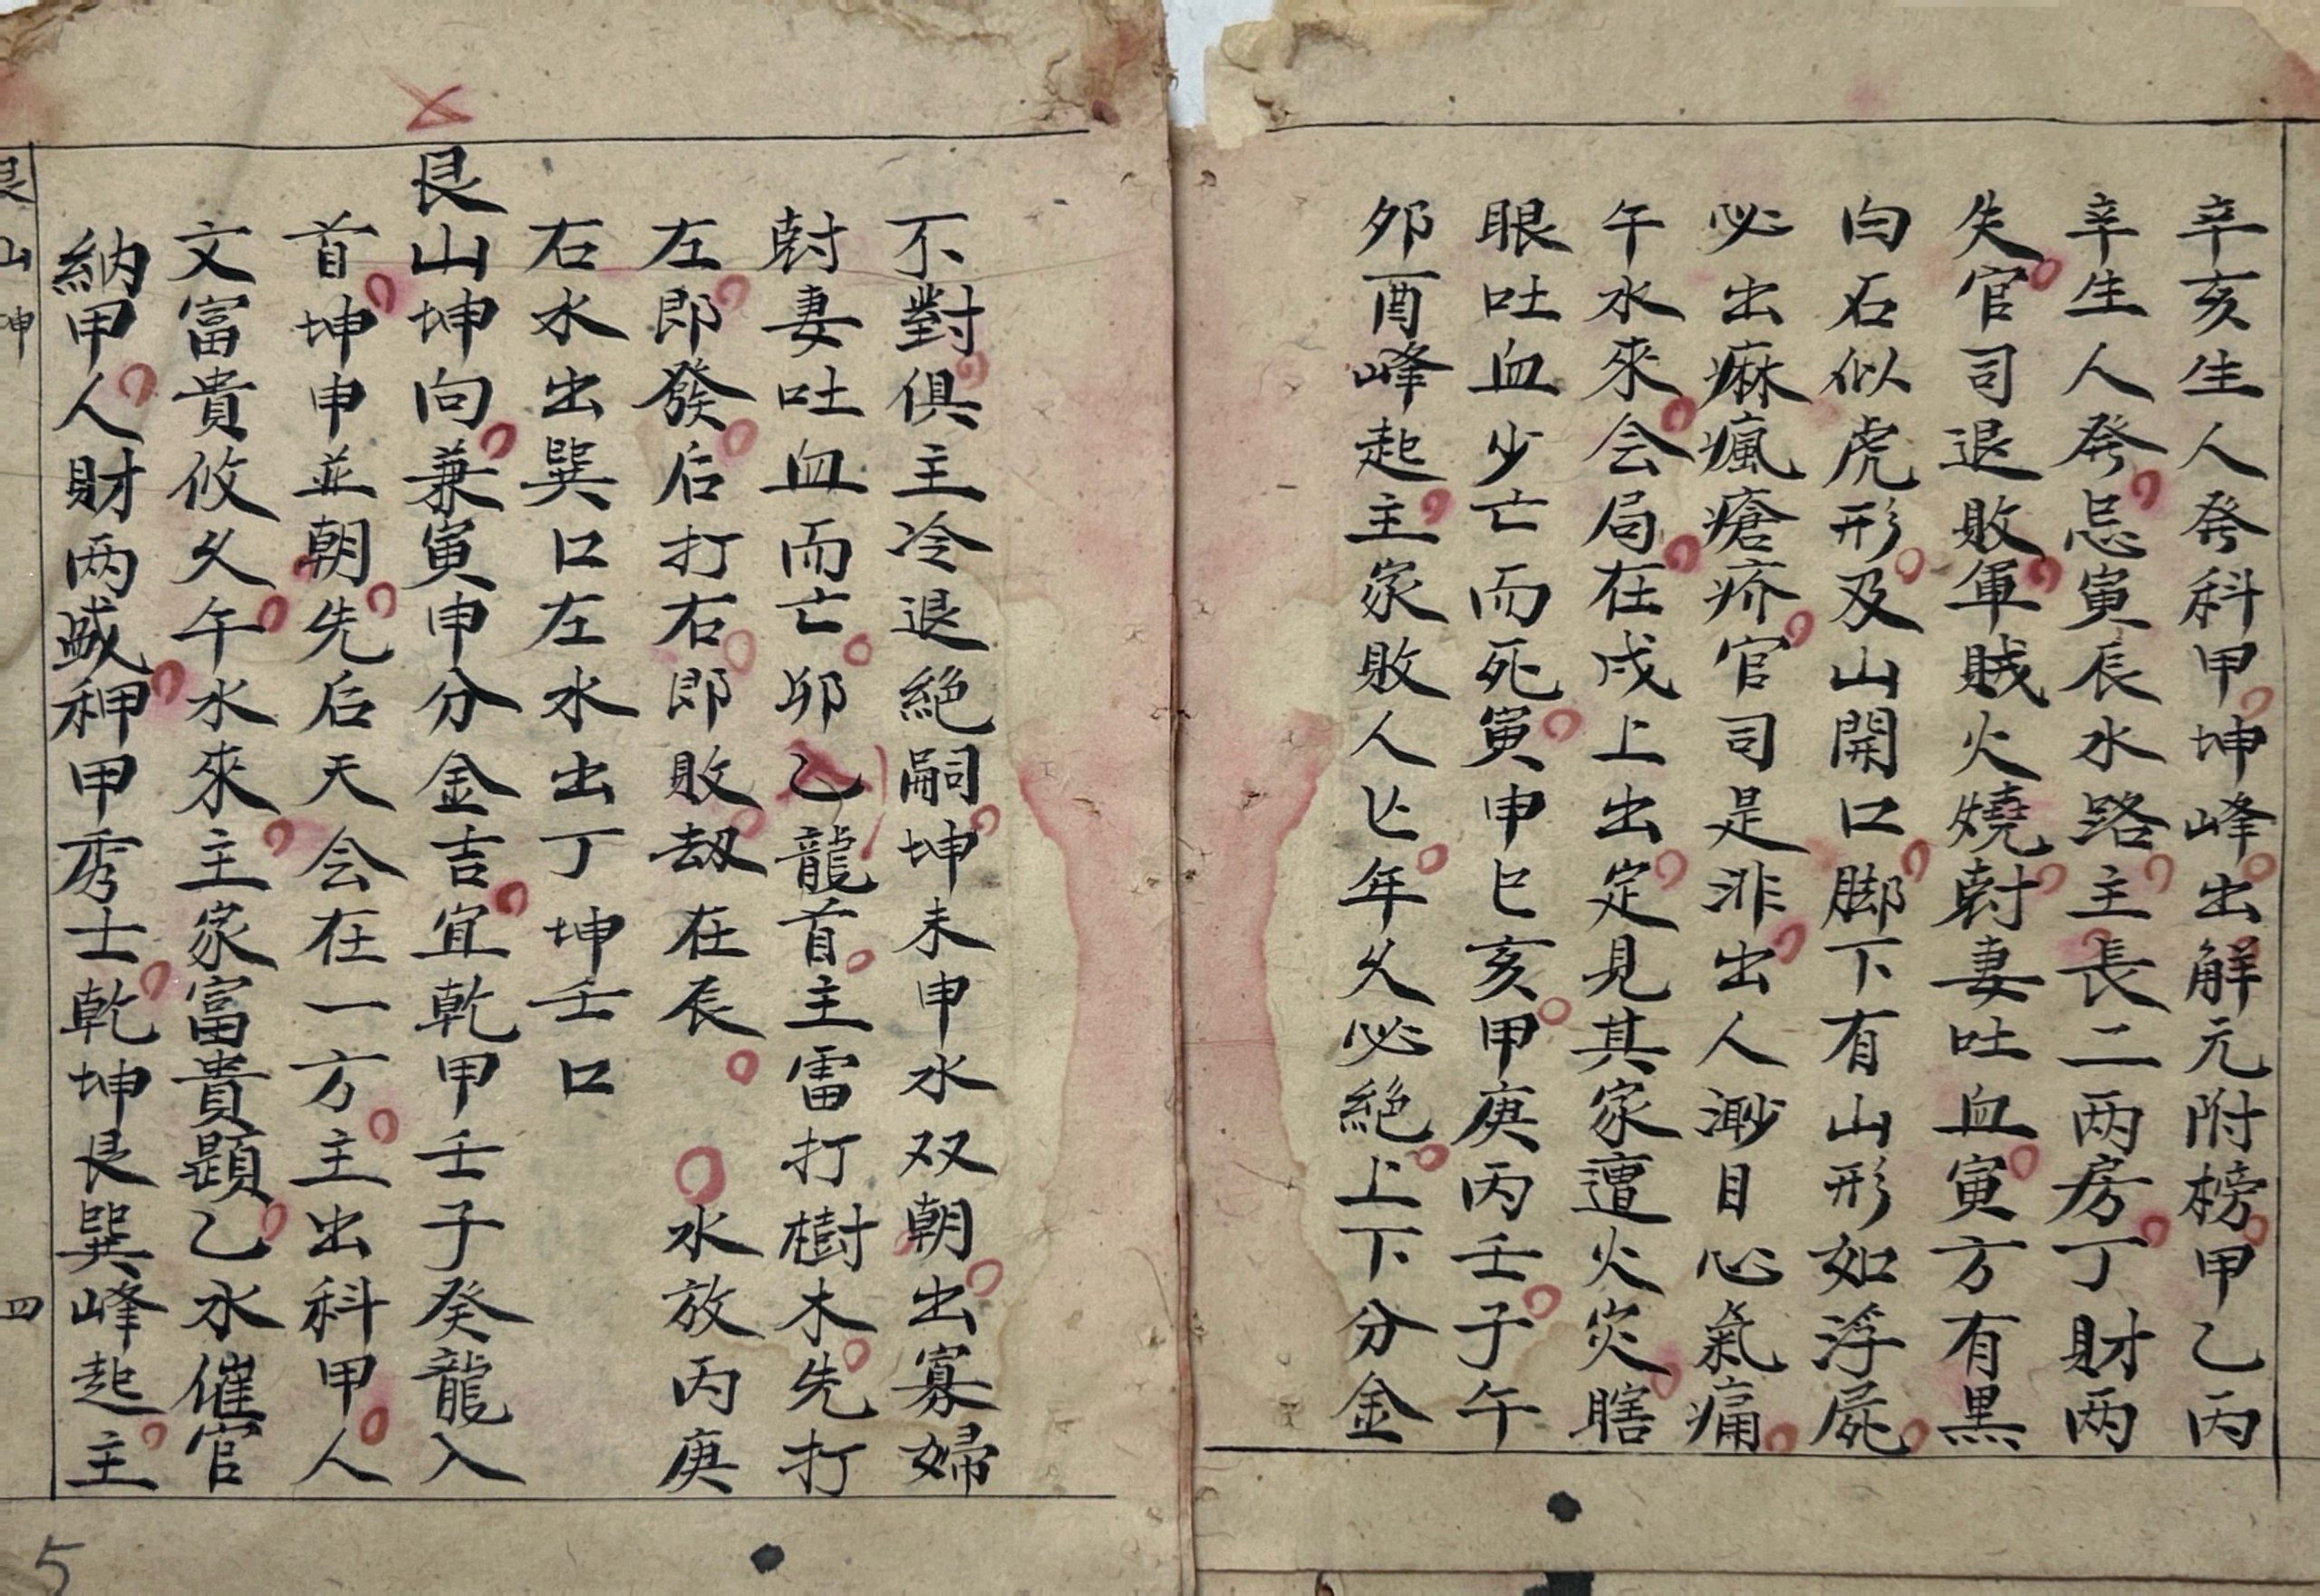 辛亥生人発科甲坤峰出解元附榜甲乙丙
辛生人発忌寅辰水路主長二两房丁財两
失官司退敗軍賊火燒尅妻吐血寅方有黑
白石似虎形及山開口脚下有山形如浮屍
必出痳瘋瘡疥官司是非出人渺目心氣痛
午水來会局在戌上出定見其家遭火災瞎
眼吐血少亡而死寅申巳亥甲庚丙壬子午
夘酉峰起主家敗人亾年久必絕上下分金
不對俱主冷退絕嗣坤未申水双朝出寡婦
尅妻吐血而亡卯乙龍首主雷打樹木先打
左即發后打右即敗劫在辰 水放丙庚
右水出巽口左水出丁坤壬口
艮山坤向兼寅申分金吉宜乾甲壬子癸龍入
首坤申並朝先后天会在一方主出科甲人
文富貴攸久午水來主家富貴顕乙水催官
納甲人財两盛秤甲秀士乾坤艮巽峰起主
艮山坤 四
5